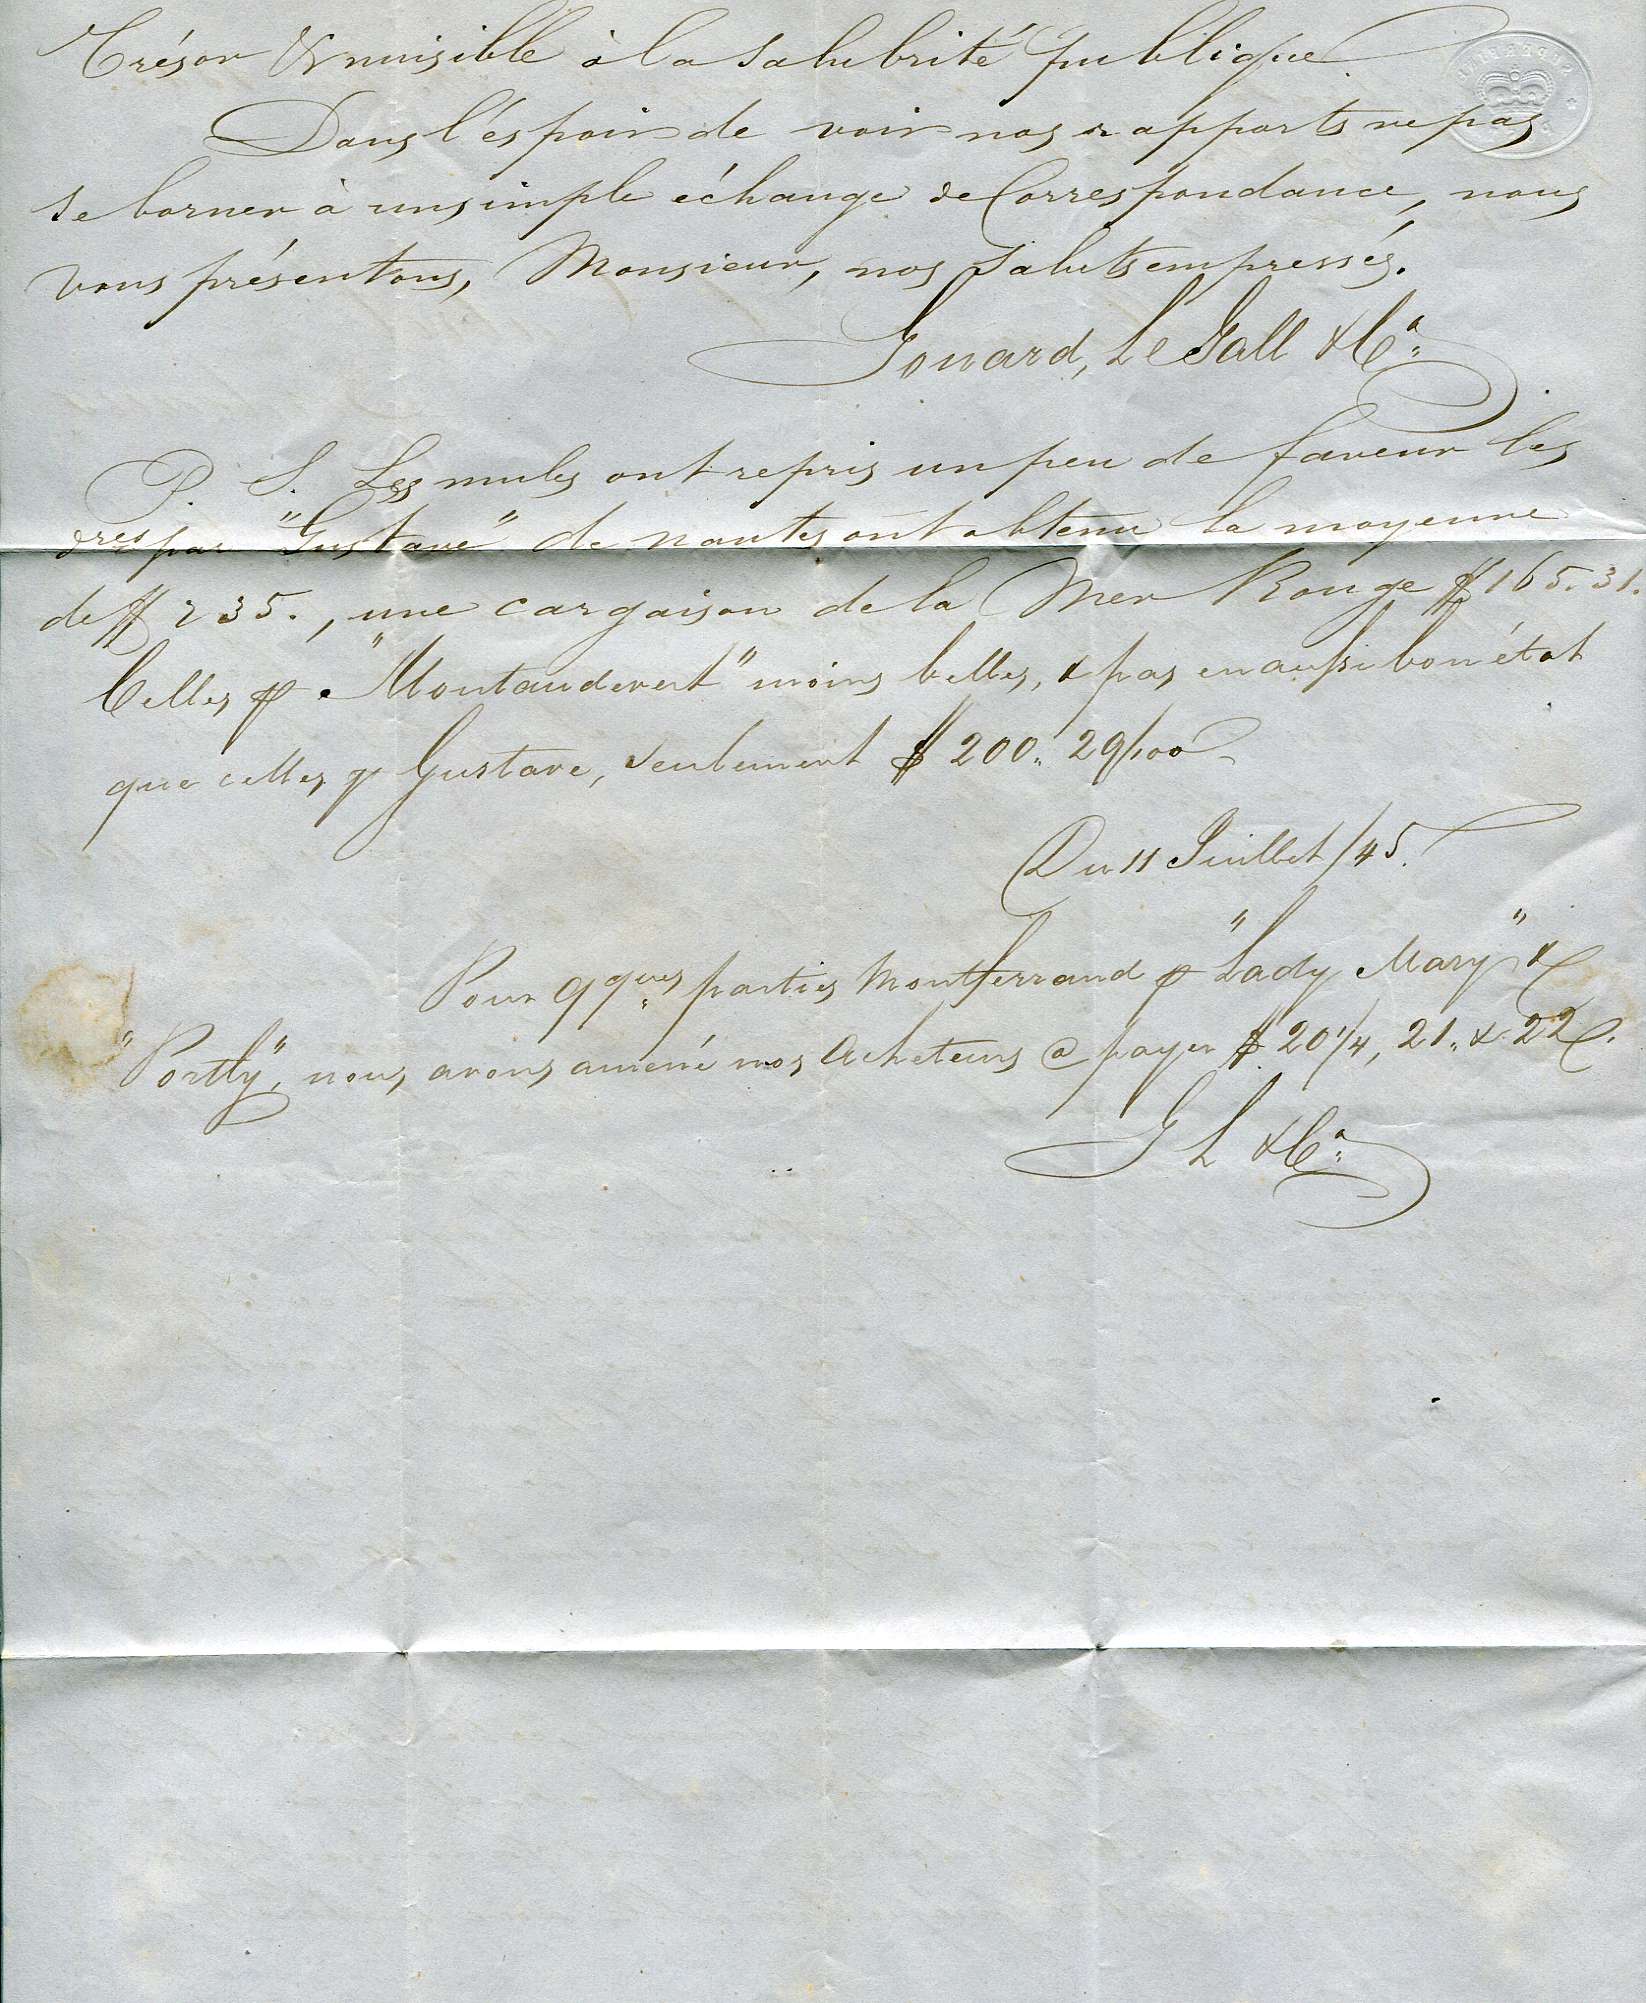 Trésor & nuisible à la salubrité publique.
Dans l'éspoir de voir nos rapports ne pas
se borner à un simple échange de Correspondance, nous
vous présentons, Monsieur, nos saluts empressés.
Gouard, Le Gall & Cie
P. S. Les mules ont repris un peu de faveur les
dres par "Gustave" de Nantes ont obtenu la moyenne
de $ 235., une cargaison de la Mer Rouge $ 165.31.
Celles p "Montaudevert" moins belles, & pas en aussi bon état
que celles p Gustave, seulement $ 200. 29/100
Du 11 Juillet /45.
Pour qques parties Montferrand p "Lady Mary" &
"Portly", nous avons amené nos Acheteurs @ payer $ 20 1/4, 21. & 22.
G L & Cie